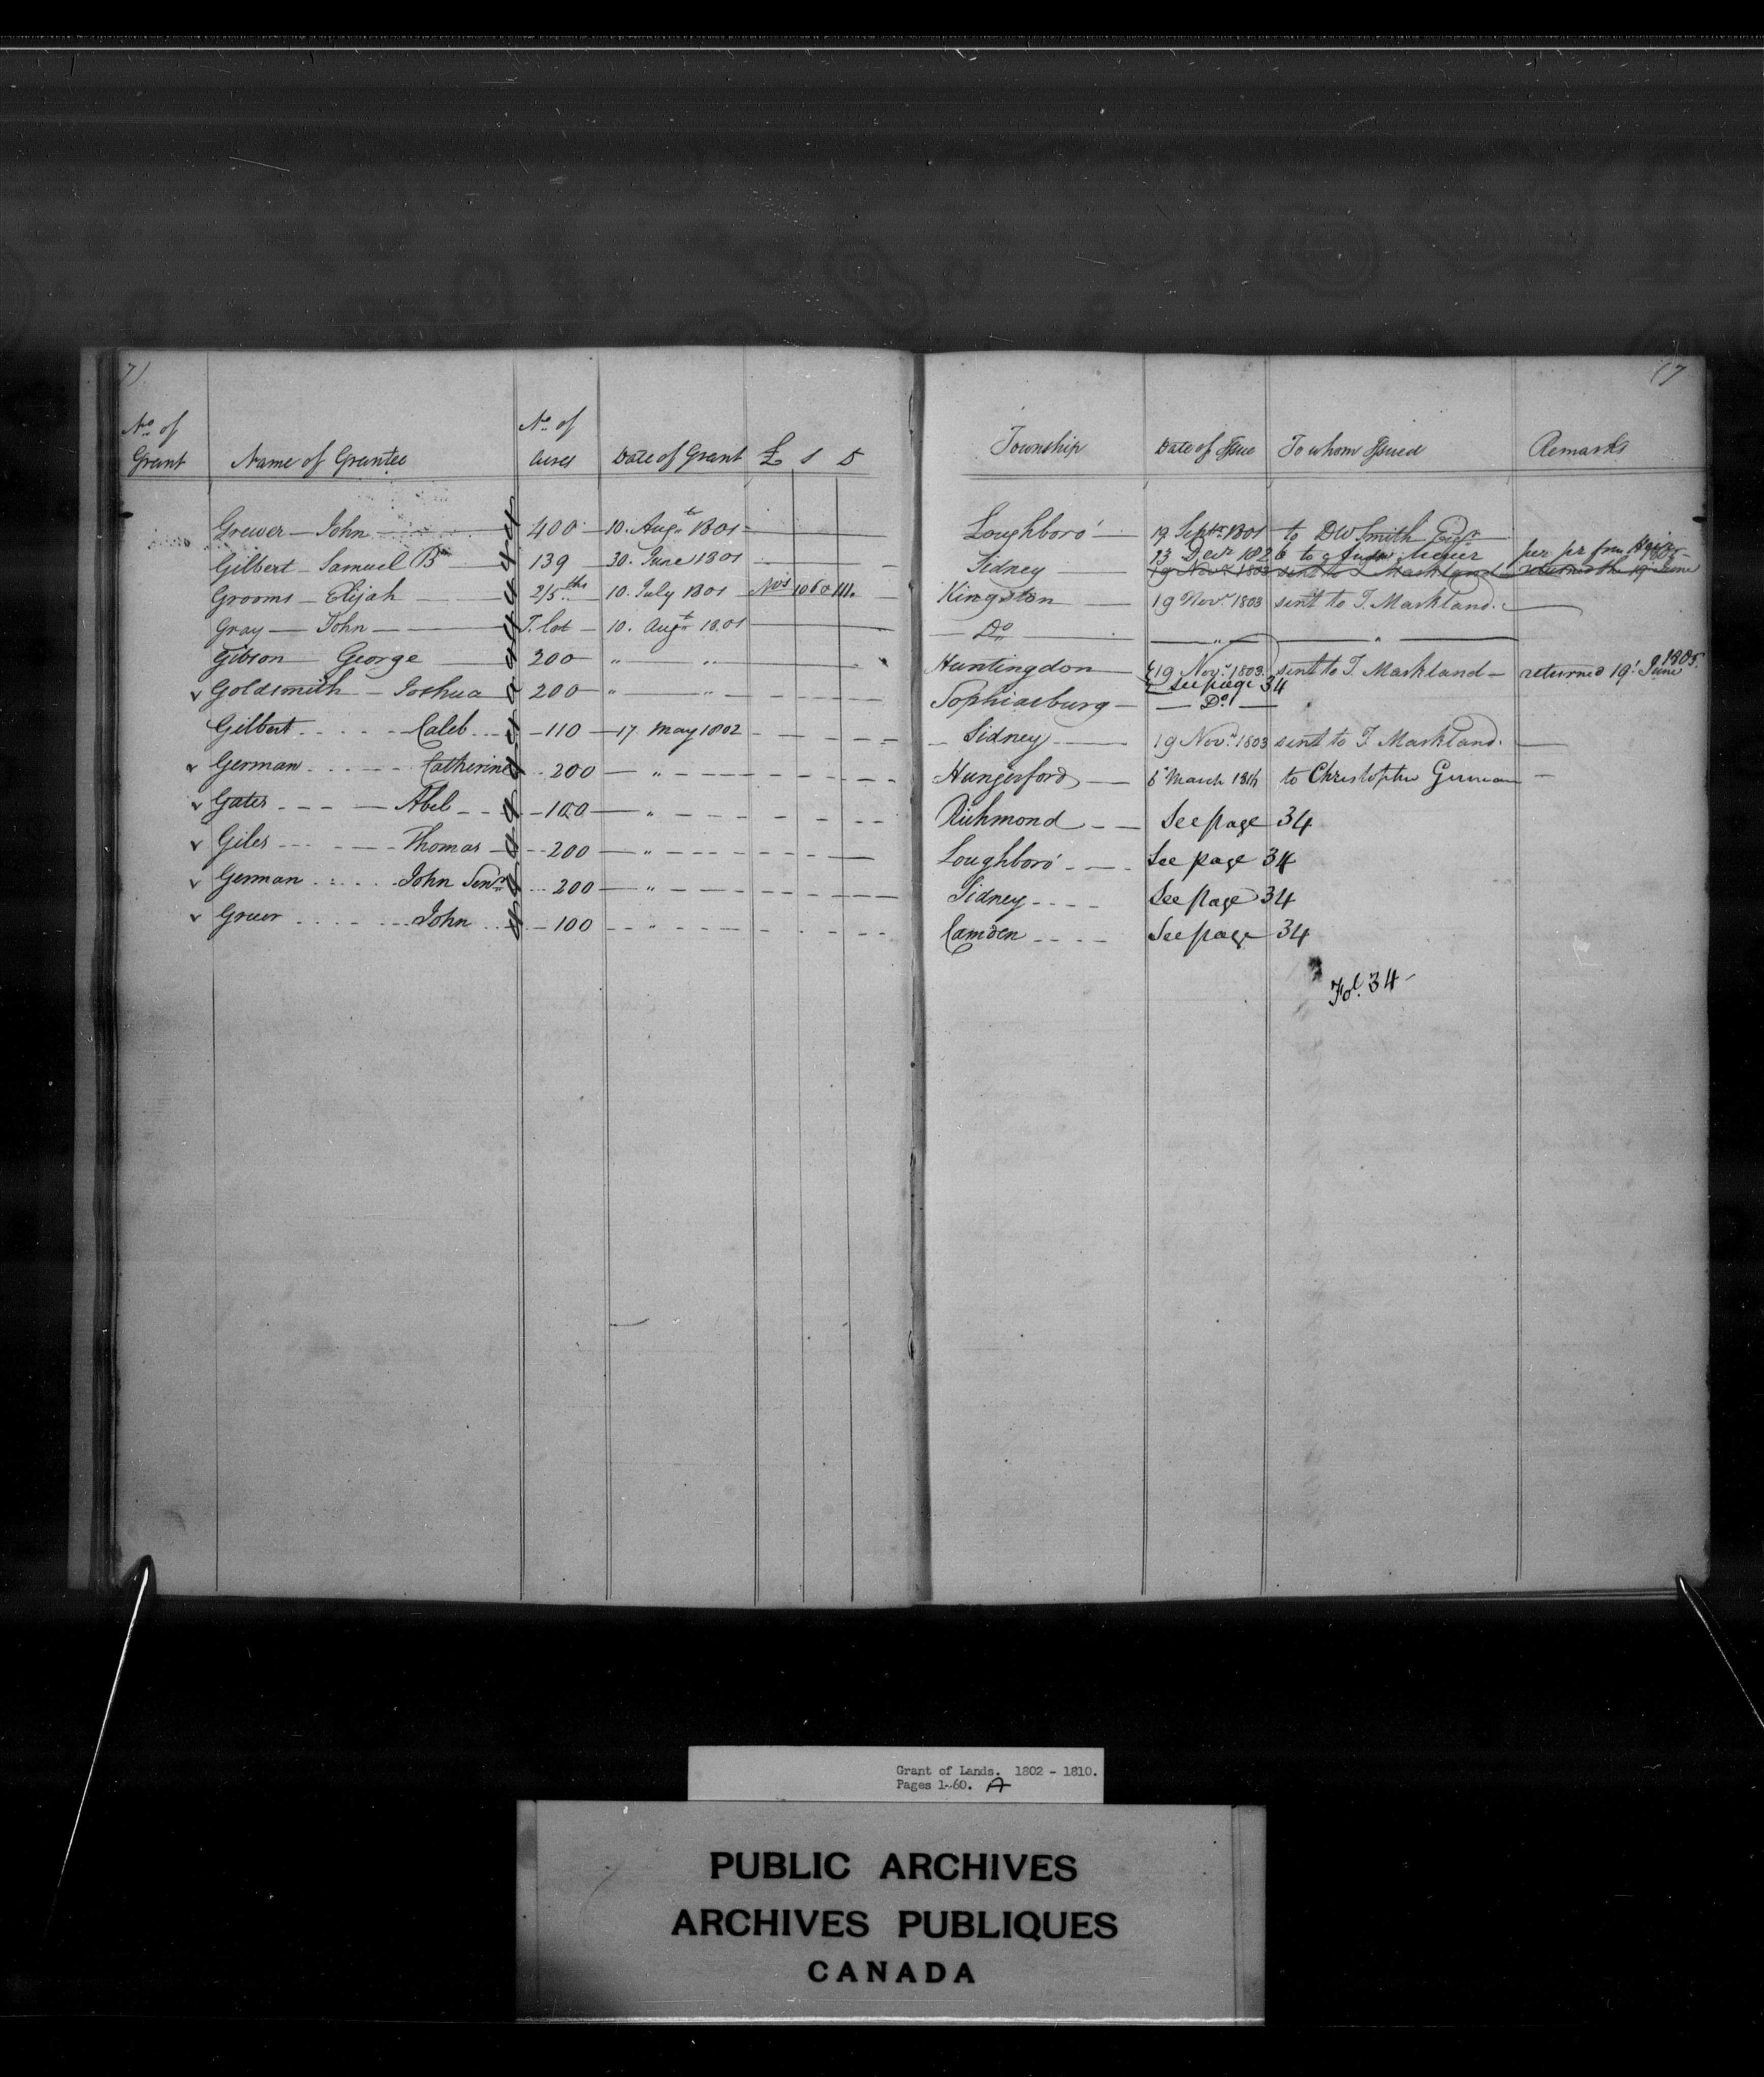 7)
(7
No. of Grant Name of Grantee No. of Acres Date of Grant £ S D Township Date of Issue To whom Issued Remarks
Grewer — John 400 10. Augt. 1801 Loughboro' 19 Septr. 1801 to D W Smith Esqr.
Gilbert Samuel Br. 139 30. June 1801 Sidney 23 Decr. 1826 to Meyer per pr from
19 Novr. 1803 sent to T Markland returned the 19 June 1805
Grooms — Elijah 2/5ths 10. July 1801 Nos 10 60 111. Kingston 19 Novr. 1803 sent to T. Markland.
Gray — John T. lot 10. Augt. 1801 Do " "
Gibson George 200 " " Huntingdon 19 Novr. 1803. sent to T. Markland — returned 19! June 1805.
see page 34
v Goldsmith — Joshua 200 " " Sophiasburg — Do —
Gilbert Caleb 110 17. May 1802 Sidney 19 Novr. 1803 sent to T. Markland.
v German Catherine 200 " Hungerford 8 March 1816 to Christopher German
v Gates Abel 100 " Richmond See page 34
v Giles Thomas 200 " Loughboro' See page 34
v German John Senr. 200 " Sidney See page 34
v Gruer John 100 " Camden See page 34
Fol. 34
Grant of Lands. 1802 - 1810.
Pages 1-60. A
PUBLIC ARCHIVES
ARCHIVES PUBLIQUES
CANADA